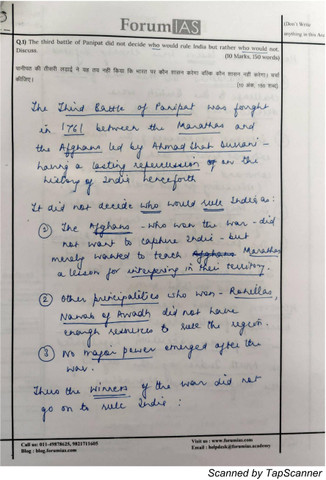 ForumIAS
(Don't Write
anything in this Are
Q.1) The third battle of Panipat did not decide who would rule India but rather who would not.
Discuss. (10 Marks, 150 words)
पानीपत की तीसरी लड़ाई ने यह तय नहीं किया कि भारत पर कौन शासन करेगा बल्कि कौन शासन नहीं करेगा। चर्चा
कीजिए। (10 अंक, 150 शब्द)
The Third Battle of Panipat was fought
in 1761 between the Marathas and
the Afghans led by Ahmad Shah Durrani -
having a lasting repercussion on the
history of India henceforth
It did not decide who would rule India as:
① The Afghans - who won the war - did
not want to capture India - but
merely wanted to teach Afghans Marathas
a lesson for interfering in their territory.
② Other principalities who won - Rohillas,
Nawab of Awadh did not have
enough resources to rule the region.
③ No major power emerged after the
war.
Thus the winners of the war did not
go on to rule India :
Call us: 011-49878625, 9821711605
Blog : blog.forumias.com
Visit us : www.forumias.com
Email : helpdesk@forumias.academy
Scanned by TapScanner